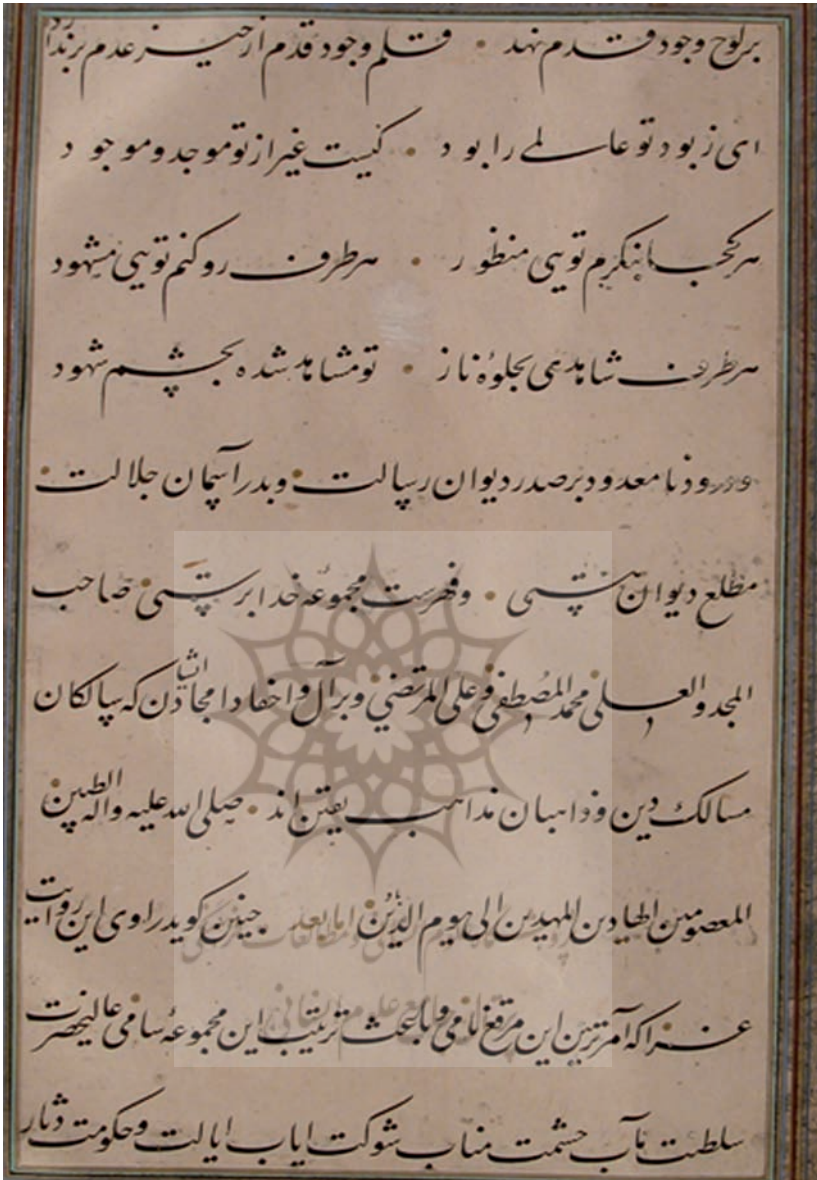 بر لوح وجود قدم نهد • قلم وجود قدم از حیز عدم برندارد
ای ز بود تو عالمی را بود • کیست غیر از تو موجد و موجود
هر کجا بنگرم تویی منظور • هر طرف رو کنم تویی مشهود
هر طرف شاهدی بجلوهٔ ناز • تو مشاهد شده بچشم شهود
و درود نامعدود بر صدر دیوان رسالت • و بدر آسمان جلالت •
مطلع دیوان • و فهرست مجموعه خداپرستی • صاحب
المجد و العلی محمد المصطفی و علی المرتضی و بر آل و احفاد امجاد ایشان که سالکان
مسالک دین و ذاهبان مذاهب یقین اند • صلی الله علیه و اله الطیبین •
المعصومین الهادین المهدیین الی یوم الدین اما بعد چنین گوید راوی این روایت
غرا که آمر تزیین این مرقع نامی و باعث ترتیب این مجموعهٔ سامی عالیحضرت
سلطنت مآب حشمت مناب شوکت ایاب ایالت و حکومت دثار